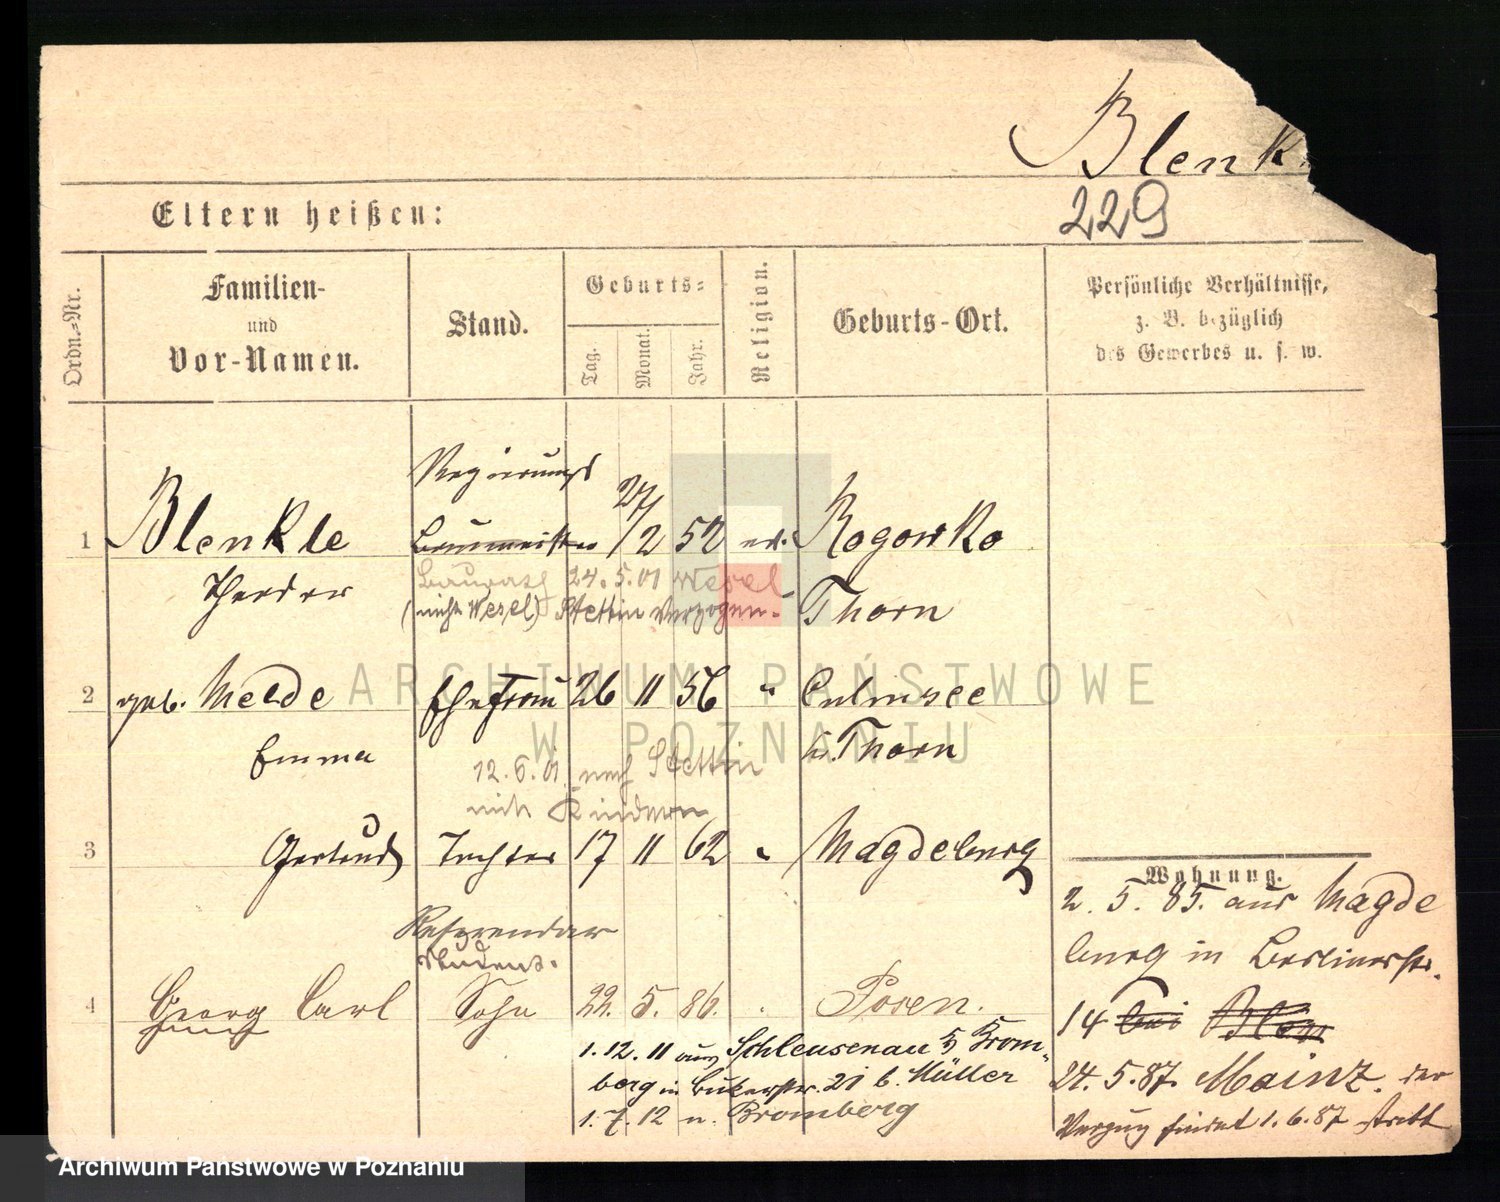 Blenk
229
Eltern heißen:
Ordn.-Nr.
Familien-
und
Vor-Namen.
Stand.
Geburts-
Tag.
Monat.
Jahr.
Religion.
Geburts-Ort.
Persönliche Verhältnisse,
z. B. bezüglich
des Gewerbes u. s. w.
Regierungs
1 Blenkle Baumeister 27/2 52 ev. Rogowko
Theodor Baurath 24.5.01 Wesel
(nicht Wesel) Stettin verzogen. Thorn
2 geb. Melde Ehefrau 26 11 56 " Culmsee
Emma Thorn
12.6.01 nach Stettin
mit Kindern
3 Gertrud Tochter 17 11 82 " Magdeburg
Referendar
Student.
4 Georg Carl Sohn 22. 5. 86. Posen.
1.12.11 aus Schleusenau b/ Brom-
berg in Bukerstr. 21 b. Müller
1.7.12 n. Bromberg
Wohnung.
2. 5. 85. aus Magde
burg in Berlinerstr.
14 bei
24. 5. 87. Mainz. der
Verzug findet 1. 6. 87 statt
ARCHIWUM PAŃSTWOWE
W POZNANIU
Archiwum Państwowe w Poznaniu